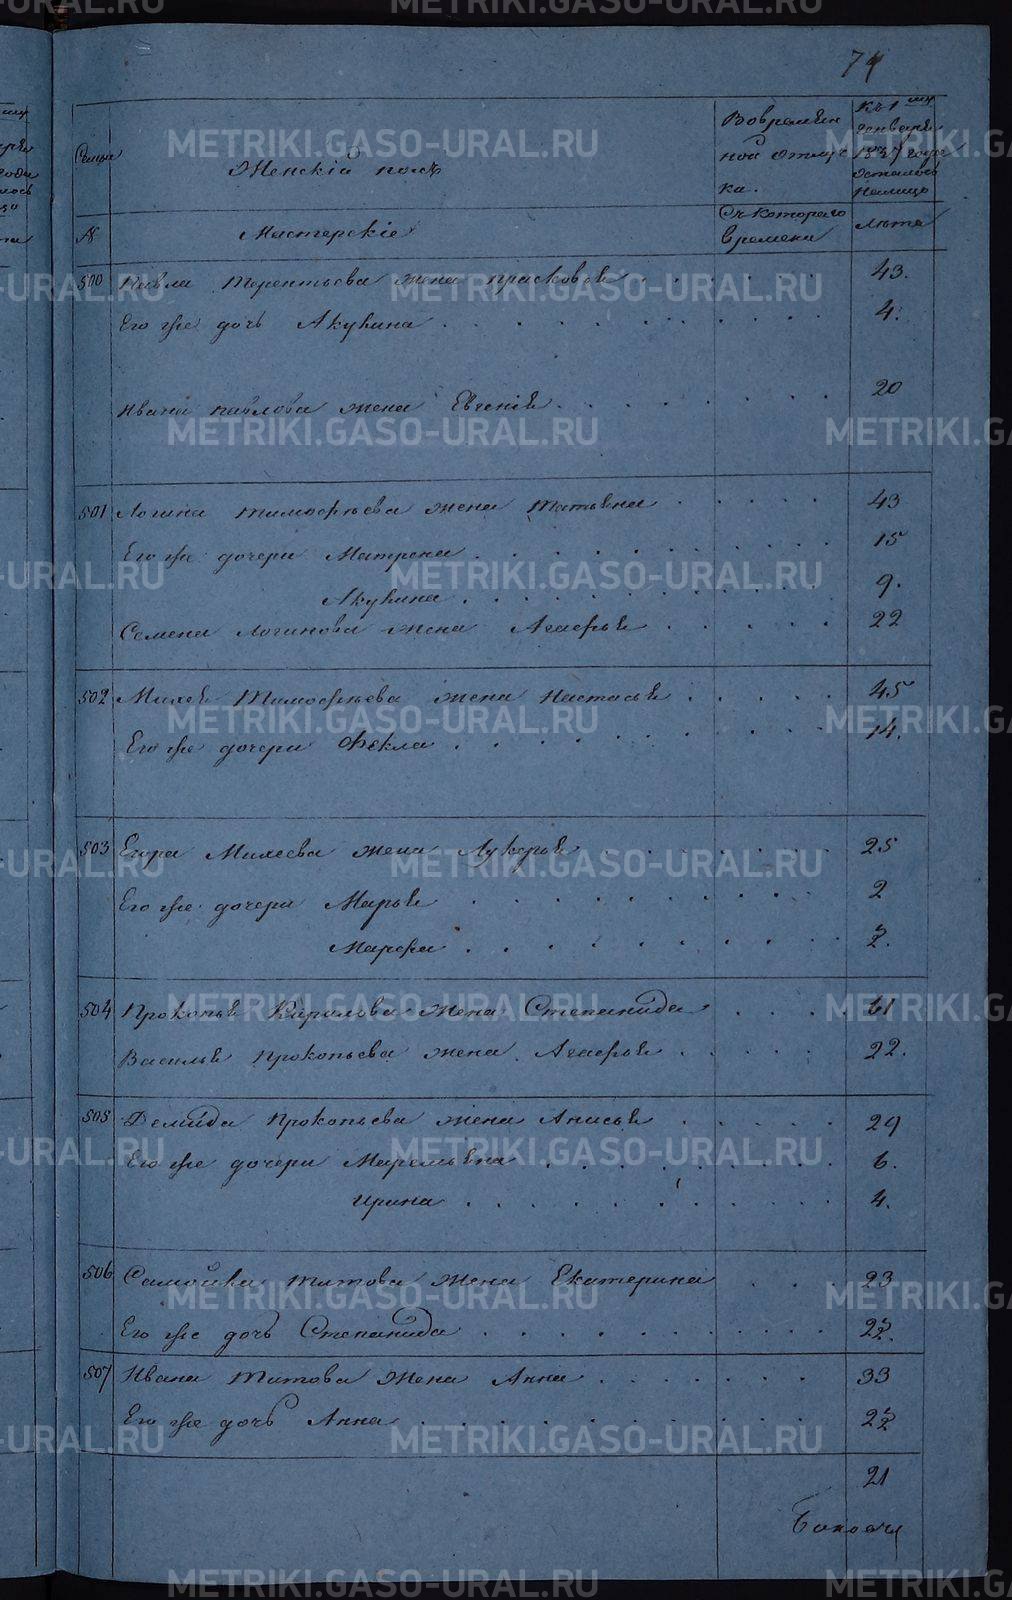 74
Семьи
Женскій полъ
Во времян
ной отлуч
ка.
Къ 1му
генваря
1837 года
осталось
налицо
№
Мастерскіе
Съ котораго
времени
Лѣта
500 Павла Терентьева жена Прасковья 43.
Его же дочь Акулина 4.
Ивана Павлова жена Евгенія 20
501 Логина Тимофѣева жена Татьяна 43
Его же дочери Матрена 15
Акулина 9.
Семена Логинова жена Агафья 22
502 Михея Тимофѣева жена Настасья 45
Его же дочери Фекла 14.
503 Егора Михеева жена Лукерья 25
Его же дочери Марья 2
Марфа
504 Прокопья Кирилова жена Степанида 61
Василья Прокопьева жена Агафья 22.
505 Демида Прокопьева жена Анисья 29
Его же дочери Маремьяна 6.
Ирина 4.
506 Самойла Титова жена Екатерина 23
Его же дочь Степанида
507 Ивана Титова жена Анна 33
Его же дочь Анна
21
METRIKI.GASO-URAL.RU